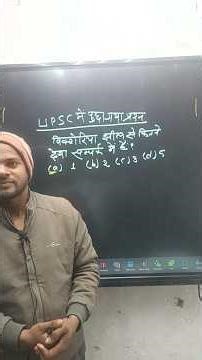 UPSC में पूछा गया प्रश्न
विक्टोरिया झील से कितने
देश सम्पर्क में हैं?
(a) 1 (b) 2 (c) 3 (d) 5